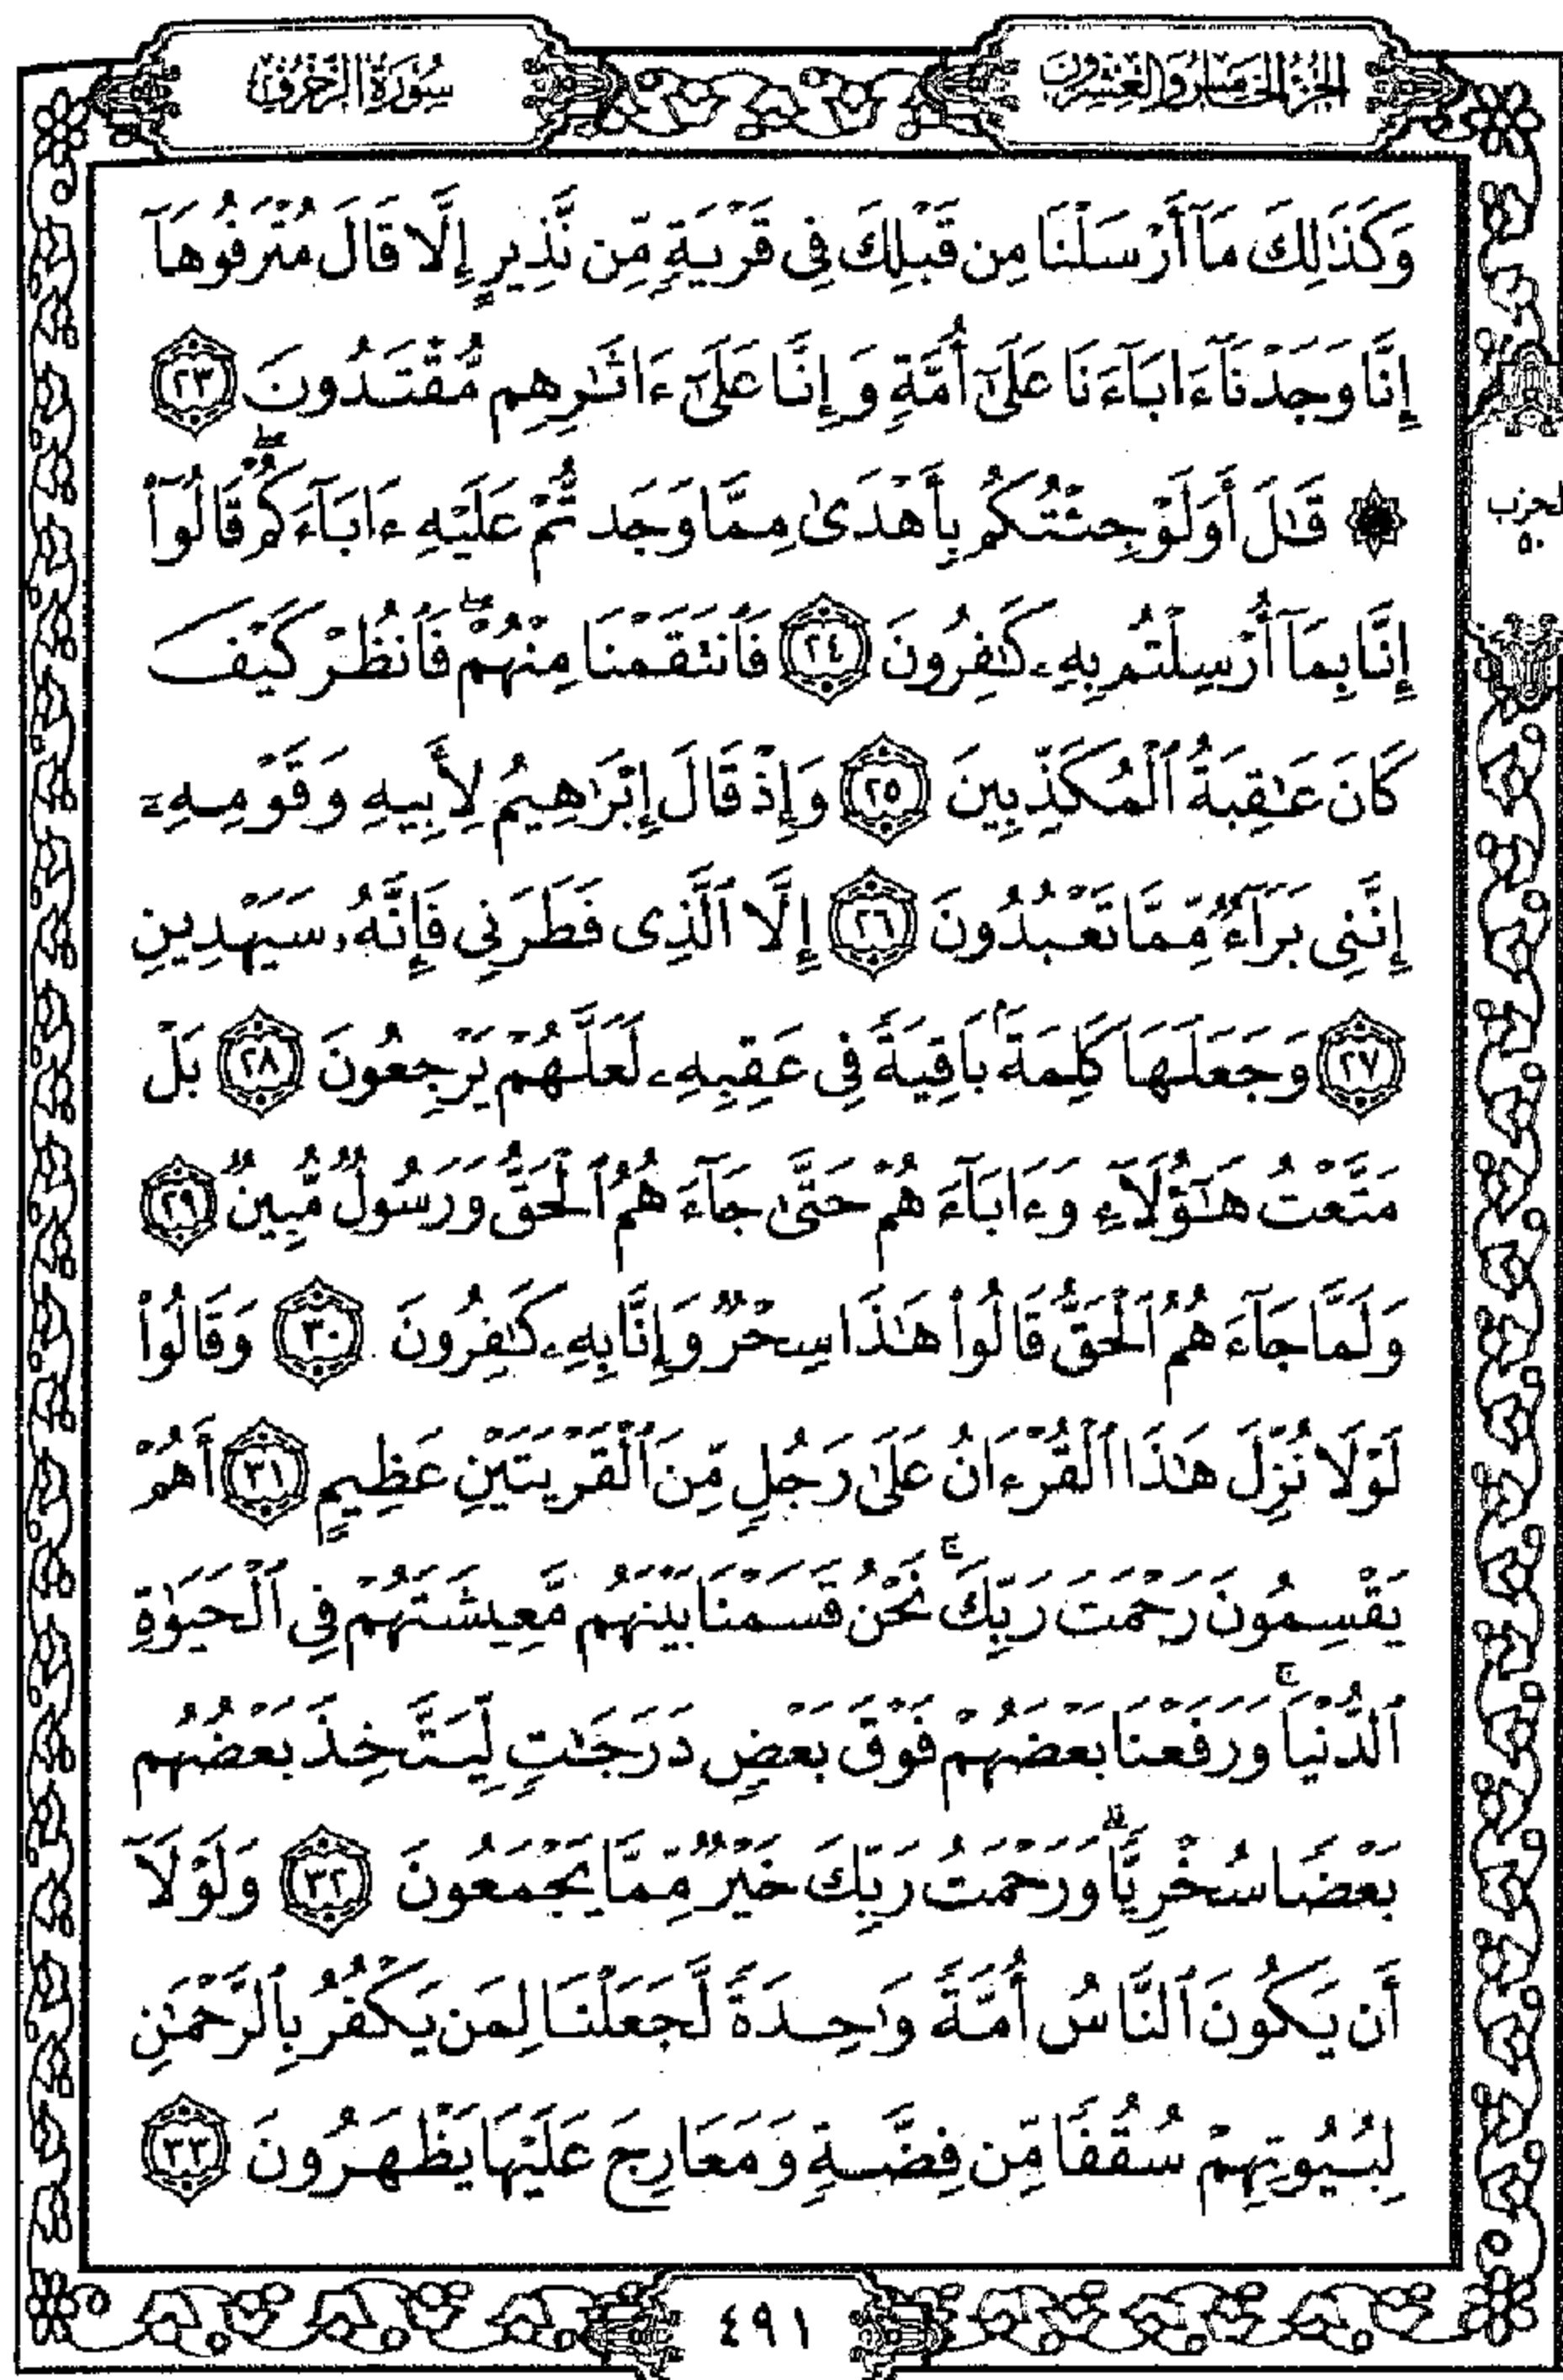 الجزء الخامس والعشرون
سورة الزخرف
وَكَذَٰلِكَ مَآ أَرْسَلْنَا مِن قَبْلِكَ فِى قَرْيَةٍ مِّن نَّذِيرٍ إِلَّا قَالَ مُتْرَفُوهَآ
إِنَّا وَجَدْنَآ ءَابَآءَنَا عَلَىٰٓ أُمَّةٍ وَإِنَّا عَلَىٰٓ ءَاثَٰرِهِم مُّقْتَدُونَ ٢٣
۞ قَٰلَ أَوَلَوْ جِئْتُكُم بِأَهْدَىٰ مِمَّا وَجَدتُّمْ عَلَيْهِ ءَابَآءَكُمْ ۖ قَالُوٓا۟
الحزب
٥٠
إِنَّا بِمَآ أُرْسِلْتُم بِهِۦ كَٰفِرُونَ ٢٤ فَٱنتَقَمْنَا مِنْهُمْ ۖ فَٱنظُرْ كَيْفَ
كَانَ عَٰقِبَةُ ٱلْمُكَذِّبِينَ ٢٥ وَإِذْ قَالَ إِبْرَٰهِيمُ لِأَبِيهِ وَقَوْمِهِۦٓ
إِنَّنِى بَرَآءٌ مِّمَّا تَعْبُدُونَ ٢٦ إِلَّا ٱلَّذِى فَطَرَنِى فَإِنَّهُۥ سَيَهْدِينِ
٢٧ وَجَعَلَهَا كَلِمَةًۢ بَاقِيَةً فِى عَقِبِهِۦ لَعَلَّهُمْ يَرْجِعُونَ ٢٨ بَلْ
مَتَّعْتُ هَٰٓؤُلَآءِ وَءَابَآءَهُمْ حَتَّىٰ جَآءَهُمُ ٱلْحَقُّ وَرَسُولٌ مُّبِينٌ ٢٩
وَلَمَّا جَآءَهُمُ ٱلْحَقُّ قَالُوا۟ هَٰذَا سِحْرٌ وَإِنَّا بِهِۦ كَٰفِرُونَ ٣٠ وَقَالُوا۟
لَوْلَا نُزِّلَ هَٰذَا ٱلْقُرْءَانُ عَلَىٰ رَجُلٍ مِّنَ ٱلْقَرْيَتَيْنِ عَظِيمٍ ٣١ أَهُمْ
يَقْسِمُونَ رَحْمَتَ رَبِّكَ ۚ نَحْنُ قَسَمْنَا بَيْنَهُم مَّعِيشَتَهُمْ فِى ٱلْحَيَوٰةِ
ٱلدُّنْيَا ۚ وَرَفَعْنَا بَعْضَهُمْ فَوْقَ بَعْضٍ دَرَجَٰتٍ لِّيَتَّخِذَ بَعْضُهُم
بَعْضًا سُخْرِيًّا ۗ وَرَحْمَتُ رَبِّكَ خَيْرٌ مِّمَّا يَجْمَعُونَ ٣٢ وَلَوْلَآ
أَن يَكُونَ ٱلنَّاسُ أُمَّةً وَٰحِدَةً لَّجَعَلْنَا لِمَن يَكْفُرُ بِٱلرَّحْمَٰنِ
لِبُيُوتِهِمْ سُقُفًا مِّن فِضَّةٍ وَمَعَارِجَ عَلَيْهَا يَظْهَرُونَ ٣٣
٤٩١